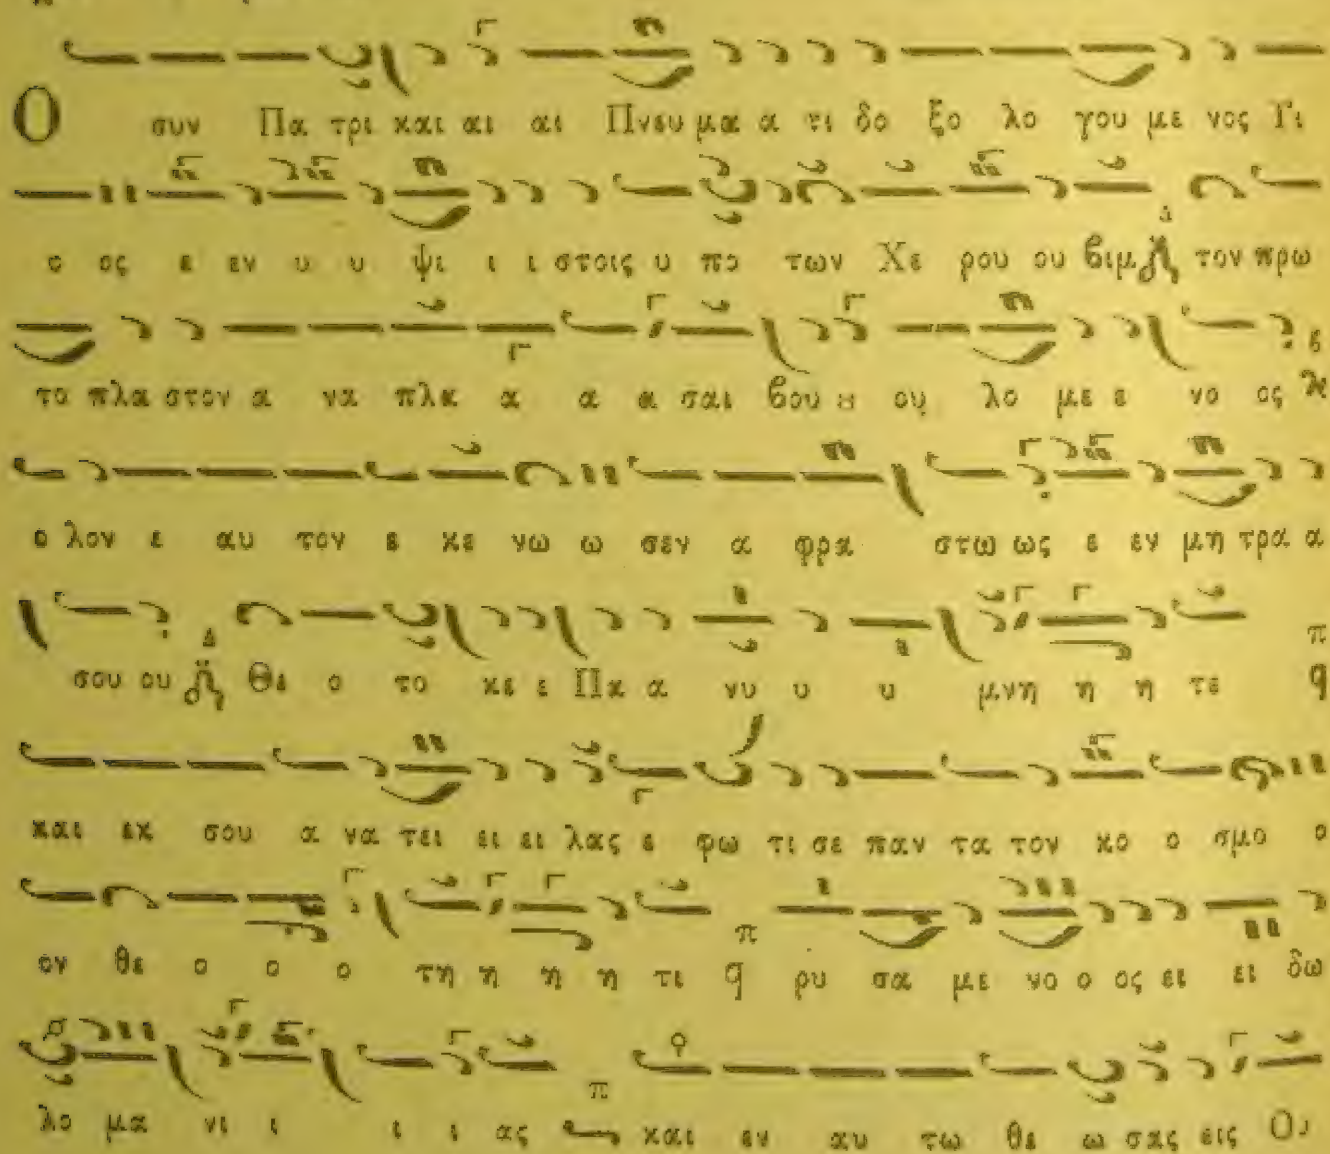 Ο συν Πα τρι και αι αι Πνευ μα α τι δο ξο λο γου με νος Υι
ο ος ε εν υ υ ψι ι ι στοις υ πο των Χε ρου ου βιμ τον πρω
το πλα στον α να πλα α α α σαι βου ου λο με ε νο ος
ο λον ε αυ τον ε κε νω ω σεν α φρα στω ως ε εν μη τρα α
σου ου Θε ο το κε ε Πα α νυ υ υ μνη η η τε
και εκ σου α να τει ει ει λας ε φω τι σε παν τα τον κο ο σμο ο
ον θε ο ο ο τη η η η τι ρυ σα με νο ο ος ει ει δω
λο μα νι ι ι ι ας και εν αυ τω θε ω σας εις Ου